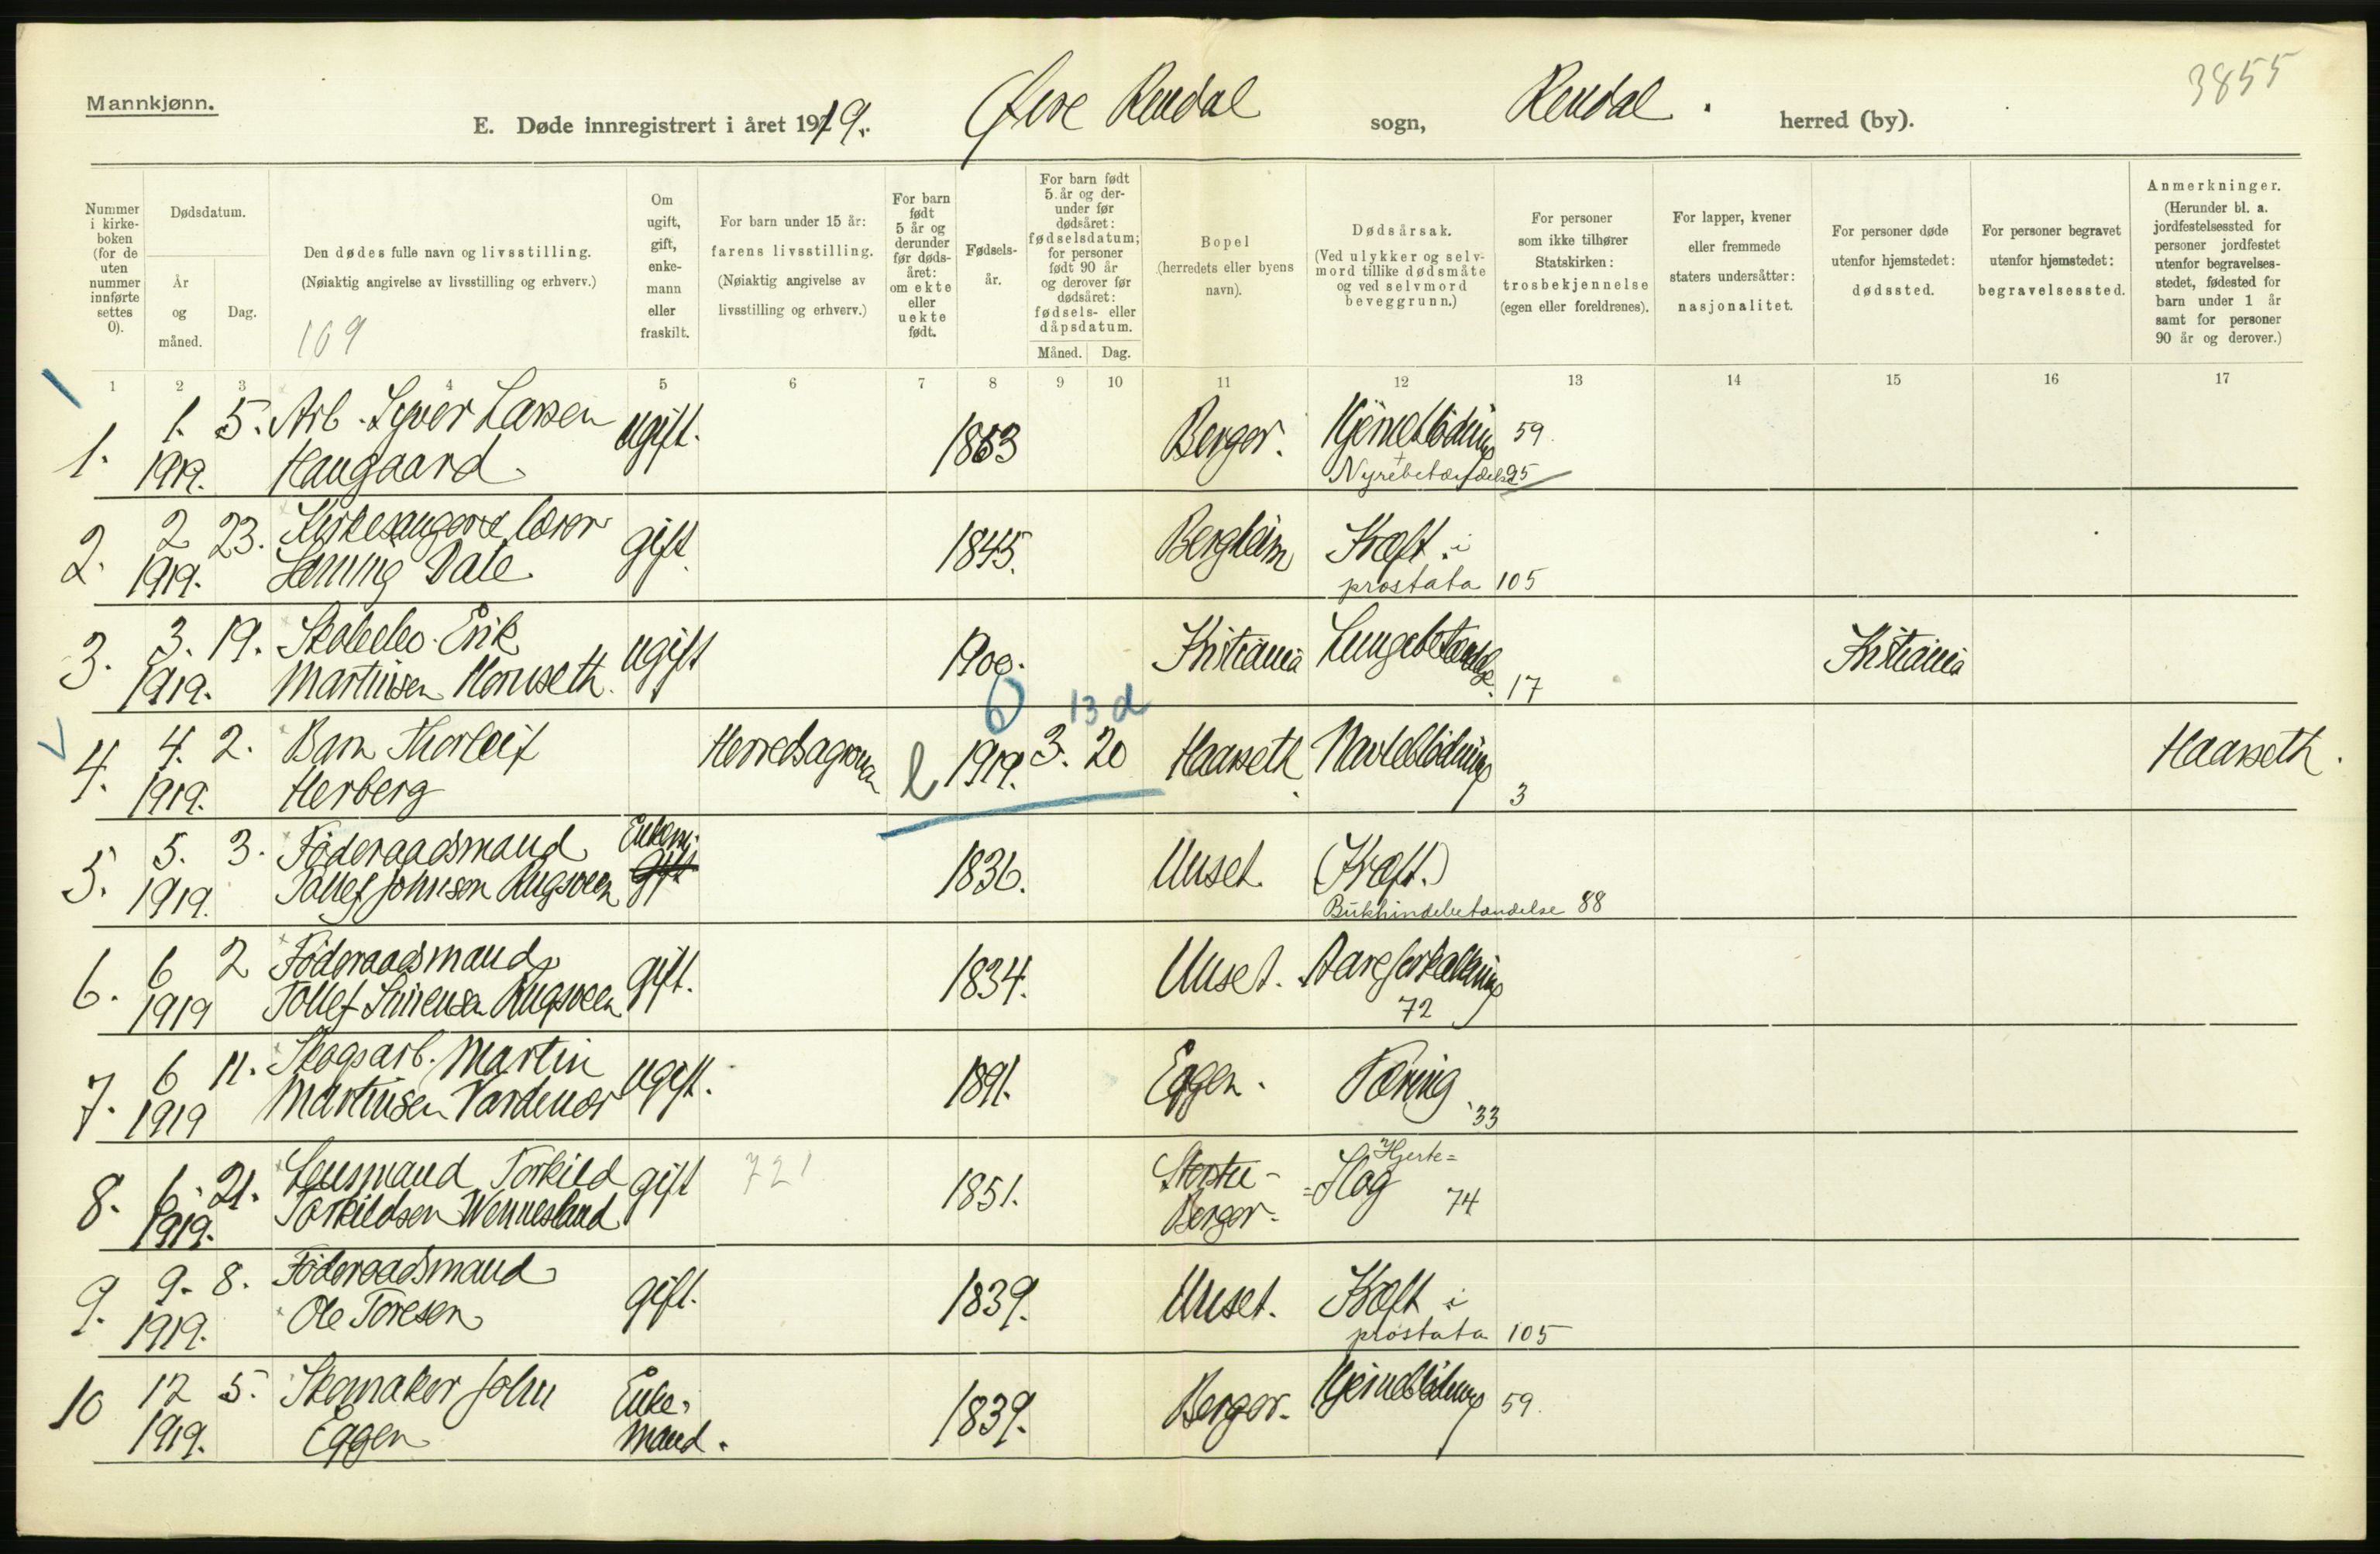 Mannkjønn.
3855
E. Døde innregistrert i året 1919. Øvre Rendal sogn, Rendal. herred (by).
Nummer i kirke-boken (for de uten nummer innførte settes 0).
Dødsdatum.
År og måned.
Dag.
Den dødes fulle navn og livsstilling.
(Nøiaktig angivelse av livsstilling og erhverv.)
169
Om ugift, gift, enke-mann eller fraskilt.
For barn under 15 år:
farens livsstilling.
(Nøiaktig angivelse av livsstilling og erhverv.)
For barn født 5 år og derunder før døds-året: om ekte eller uekte født.
Fødsels-år.
For barn født 5 år og der-under før dødsåret: fødselsdatum; for personer født 90 år og derover før dødsåret: fødsels- eller dåpsdatum.
Måned. Dag.
Bopel
(herredets eller byens navn).
Dødsårsak.
(Ved ulykker og selv-mord tillike dødsmåte og ved selvmord beveggrunn.)
For personer som ikke tilhører Statskirken: trosbekjennelse (egen eller foreldrenes).
For lapper, kvener eller fremmede staters undersåtter: nasjonalitet.
For personer døde utenfor hjemstedet: dødssted.
For personer begravet utenfor hjemstedet: begravelsessted.
Anmerkninger.
(Herunder bl. a. jordfestelsessted for personer jordfestet utenfor begravelses-stedet, fødested for barn under 1 år samt for personer 90 år og derover.)
1 2 3 4 5 6 7 8 9 10 11 12 13 14 15 16 17
1. 1. 5. Arb. Syver Larsen ugift. 1863 Berger. Hjerneblödning 59.
1919. Haugaard. + Nyrebetændelse 95
2. 2 23. Kirkesanger & lærer gift. 1845. Bergheim Kræft i
1919. Henning Dale prostata 105
3. 3. 19. Skoleelev. Erik ugift 1900. Kristiania Lungebetændelse. 17 Kristiania
1919. Martinsen Hornseth.
6 13 d
4. 4. 2. Barn Thorleif Herredsagronom l 1919. 3. 20 Haarseth. Navleblödning 3 Haarseth.
1919. Herberg
5. 5. 3. Föderaadsmand Enkem. gift 1836. Unset. (Kræft.)
1919. Tollef Johnsen Rugsveen Bukhindebetændelse 88
6. 6 2 Föderaadsmand gift. 1834. Unset. Aareforkalkning
1919 Tollef Simensen Rugsveen 72
7. 6 11. Skogsarb. Martin ugift. 1891. Eggen. Tæring 33
1919 Martinsen Vardenær
8. 6. 21. Lensmand Torkild gift 721 1851. Berger. Hjerte=
1919. Torkildsen Wennesland =slag 74
9. 9. 8. Föderaadsmand gift. 1839. Unset. Kræft i
1919. Ole Toresen prostata 105
10 12 5. Skomaker John Enke- 1839. Berger. Hjerneblödning 59.
1919. Eggen mand.